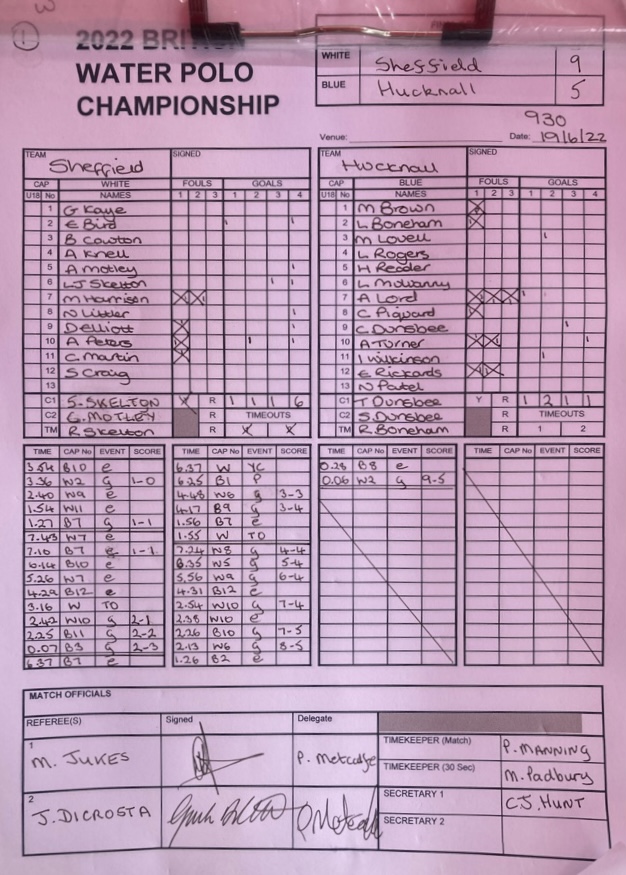 1
2022 BRITISH
WATER POLO
CHAMPIONSHIP
WHITE Sheffield 9
BLUE Hucknall 5
930
Venue: Date: 19/6/22
TEAM Sheffield SIGNED
CAP WHITE FOULS GOALS
U18 No NAMES 1 2 3 1 2 3 4
1 G Kaye
2 E Bird
3 B Cowton
4 A Knell
5 A Motley
6 LJ Skelton
7 M Harrison
8 N Littler
9 D Elliott
10 A Peters
11 C. Martin
12 S Craig
13
C1 S. SKELTON Y R 1 1 1 6
C2 G. MOTLEY R TIMEOUTS
TM R Skelton R
TEAM Hucknall SIGNED
CAP BLUE FOULS GOALS
U18 No NAMES 1 2 3 1 2 3 4
1 M Brown
2 L Boneham
3 M Lovell
4 L Rogers
5 H Reader
6
7 A Lord
8 C Piquard
9 C Dunsbee
10 A Turner
11 I Wilkinson
12 E Rickards
13 N Patel
C1 T Dunsbee Y R 1 2 1 1
C2 S. Dunsbee R TIMEOUTS
TM R. Boneham R 1 2
TIME CAP No EVENT SCORE
3.54 B10 e
3.36 W2 g 1-0
2.40 W9 e
1.54 W11 e
1.27 B7 g 1-1
7.43 W7 e
7.10 B7 e 1-1
6.14 B10 e
5.26 W7 e
4.29 B12 e
3.16 W TO
2.42 W10 g 2-1
2.25 B11 g 2-2
0.07 B3 g 2-3
6.37 B7 e
TIME CAP No EVENT SCORE
6.37 W YC
6.25 B1 P
4.48 W6 g 3-3
4.17 B9 g 3-4
1.56 B7 e
1.55 W TO
7.24 W8 g 4-4
6.35 W5 5-4
5.56 W9 g 6-4
4.31 B12 e
2.54 W10 g 7-4
2.38 W10 e
2.26 B10 g 7-5
2.13 W6 g 8-5
1.26 B2 e
TIME CAP No EVENT SCORE
0.28 B8 e
0.06 W2 g 9-5
TIME CAP No EVENT SCORE
MATCH OFFICIALS
REFEREE(S) Signed Delegate
1 M. JUKES P. Metcalfe
2 J. DICROSTA
TIMEKEEPER (Match) P. MANNING
TIMEKEEPER (30 Sec) M. Padbury
SECRETARY 1 C.J. HUNT
SECRETARY 2